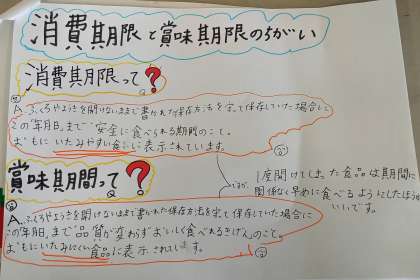 消費期限と賞味期限のちがい
消費期限って?
A.ふくろやようきを開けないままで書かれた保存方法を守って保存していた場合に
この「年月日」まで「安全に食べられる期間のこと。
おもにいたみやすい食品に表示されています。
賞味期間って?
A.ふくろやようきを開けないままで書かれた保存方法を守って保存していた場合に
この「年月日」まで「品質が変わらずおいしく食べられるきげん」のこと。
おもにいたみにくい食品に表示されてます。
1度開けてしまった食品は期間に
関係なく早めに食べるようにしたほうが
いいです。